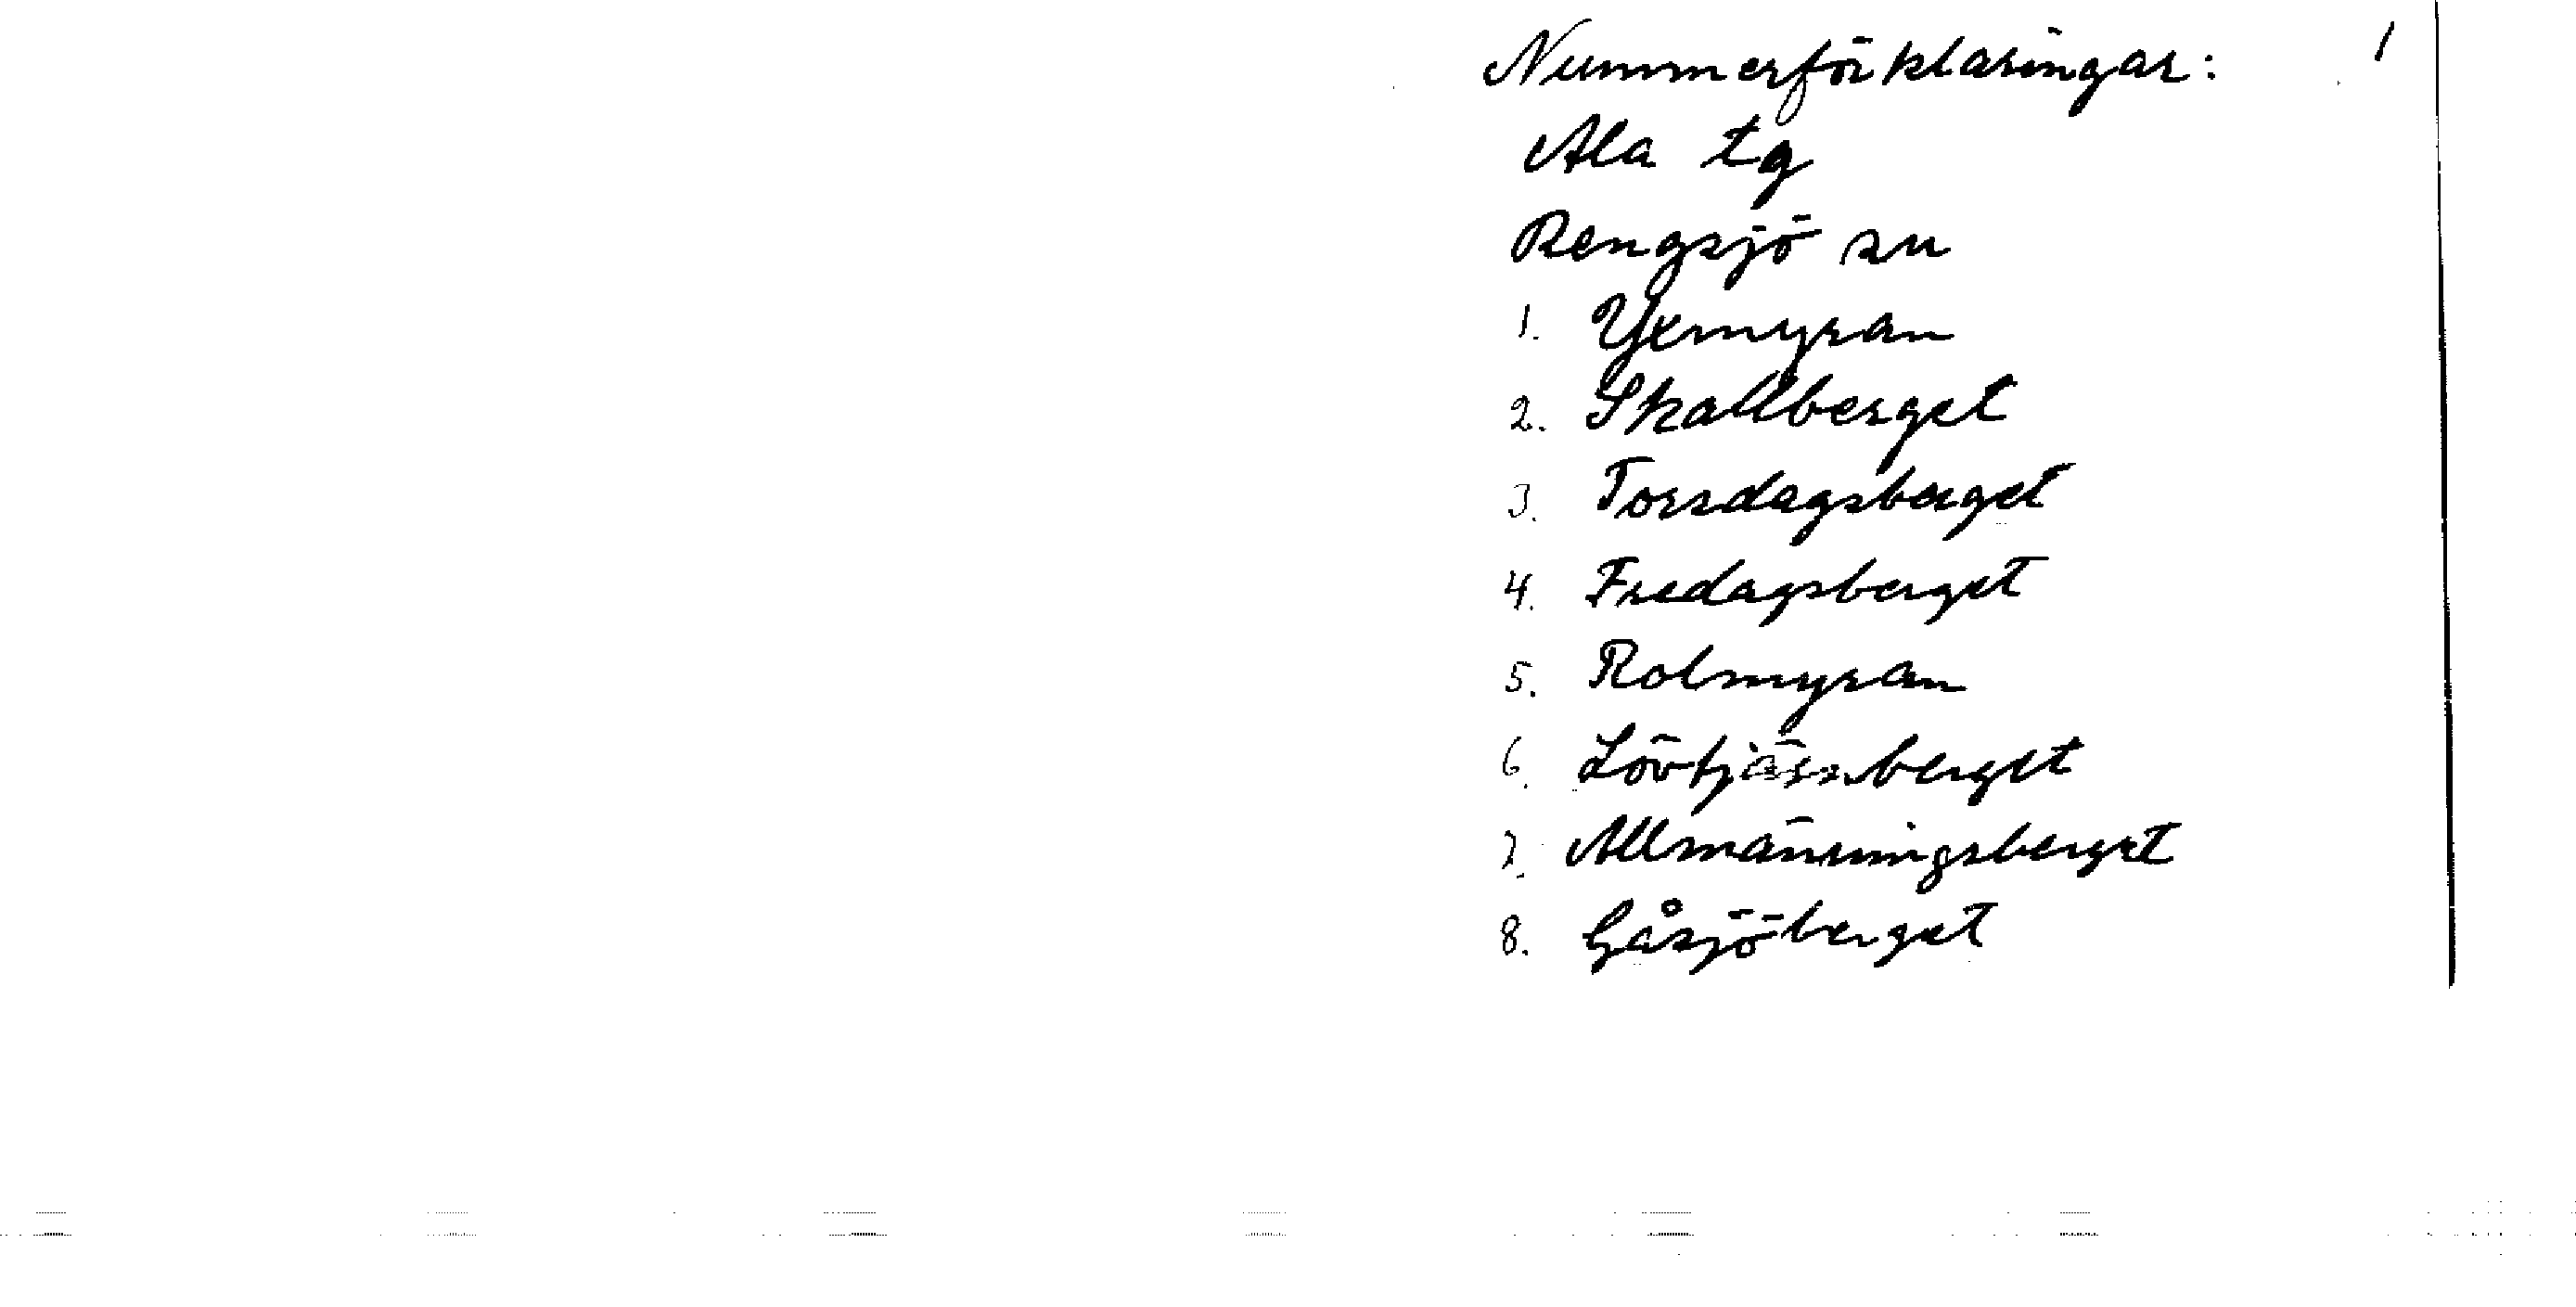 Nummerförklaringar: 1
Ala tg
Rengsjö sn
1. Yxmyran
2. Skallberget
3. Torsdagsberget
4. Fredagsberget
5. Rolmyran
6. Lövtjärnberget
7. Allmänningsberget
8. Gåsjöberget